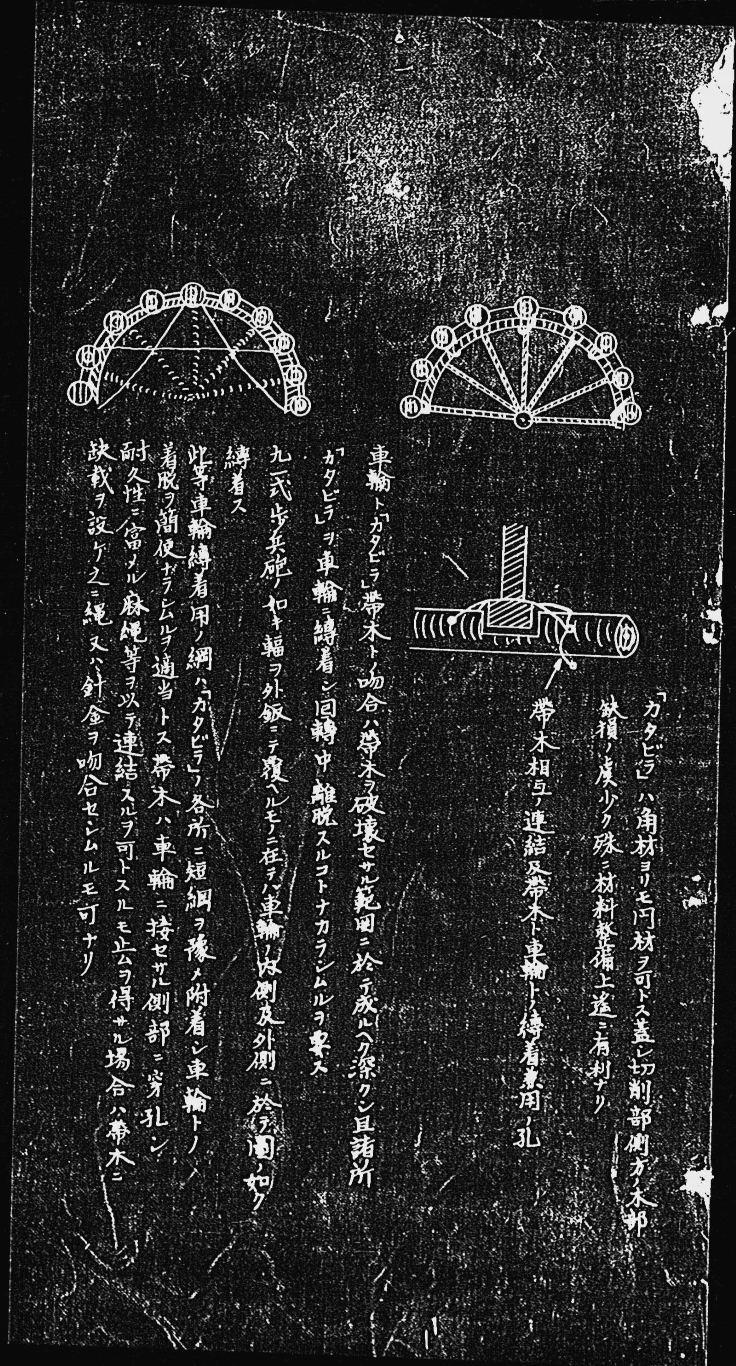 「カタビラ」ハ角材ヨリモ円材ヲ可トス蓋シ切削部側方ノ木部
缺損ノ虞少ク殊ニ材料整備上遙ニ有利ナリ
帶木相互ノ連結及帶木ト車輪トノ縛着兼用ノ孔
車輪ト「カタビラ」帶木トノ吻合ハ帶木ヲ破壊セサル範囲ニ於テ成ルヘク深クシ且諸所
「カタビラ」ヲ車輪ニ縛着シ回轉中離脱スルコトナカラシムルヲ要ス
九二式歩兵砲ノ如キ輻ヲ外鈑ニテ覆ヘルモノニ在テハ車輪ノ内側及外側ニ於テ圖ノ如ク
縛着ス
此等車輪縛着用ノ綱ハ「カタビラ」ノ各所ニ短綱ヲ豫メ附着シ車輪トノ
着脱ヲ簡便ナラシムルヲ適当トス帶木ハ車輪ニ接セサル側部ニ穿孔シ
耐久性ニ富メル麻縄等ヲ以テ連結スルヲ可トスルモ止ムヲ得サル場合ハ帶木ニ
缺截ヲ設ケ之ニ縄又ハ針金ヲ吻合セシムルモ可ナリ